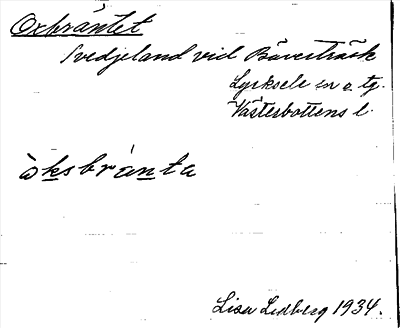 Oxbräntet
Svedjeland vid Bäverträsk
Lycksele sn o. tg.
Västerbottens l.
òksbrànta
Lisa Lidberg 1934.